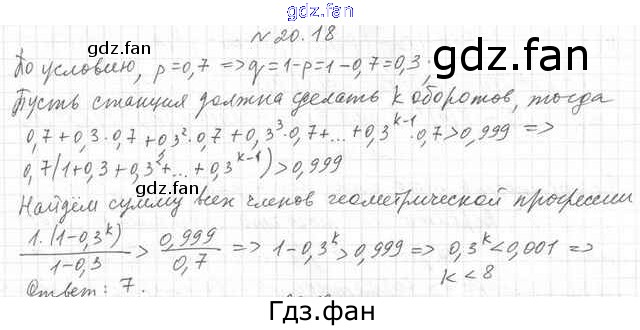 gdz.fan
№20.18
По условию, p=0,7 =>q=1-p=1-0,7=0,3;
gdz.fan
gdz.fan
Пусть станция должна сделать k оборотов, тогда
0,7+0,3·0,7+0,3²·0,7+0,3³·0,7+...+0,3^(k-1)·0,7>0,999 =>
0,7(1+0,3+0,3²+...+0,3^(k-1))>0,999
gdz.fan
Найдём сумму всех членов геометрической прогрессии
1·(1-0,3^k)/(1-0,3) > 0,999/0,7 => 1-0,3^k>0,999 => 0,3^k<0,001 =>
k<8
Ответ: 7.
Гдз.фан